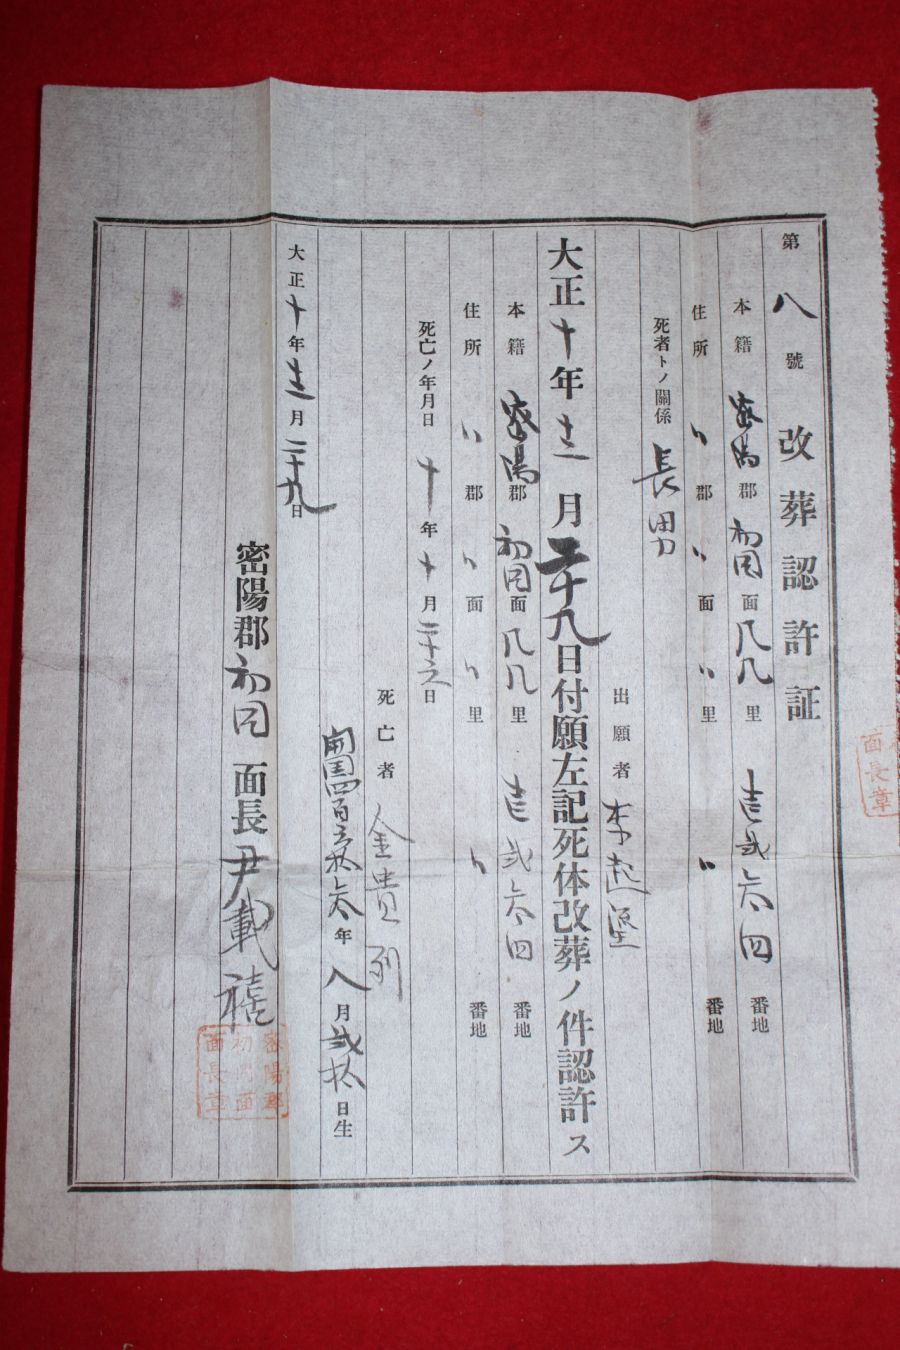 第八號 改葬認許証
本籍 密陽郡初同面凡凡里 壱弐六四 番地
住所 〃郡〃面〃里 〃 番地
死者トノ關係 長男
出願者 李
大正十年十二月二十九日付願左記死体改葬ノ件認許ス
本籍 密陽郡初同面凡凡里 壱弐六四 番地
住所 〃郡〃面〃里 〃 番地
死亡ノ年月日 十年十月二十六日
死亡者 金貴列
開國四百六年八月弐拾日生
大正十年十二月二十九日
密陽郡初同面長尹載禧
密陽郡
初同面
面長章
面長章